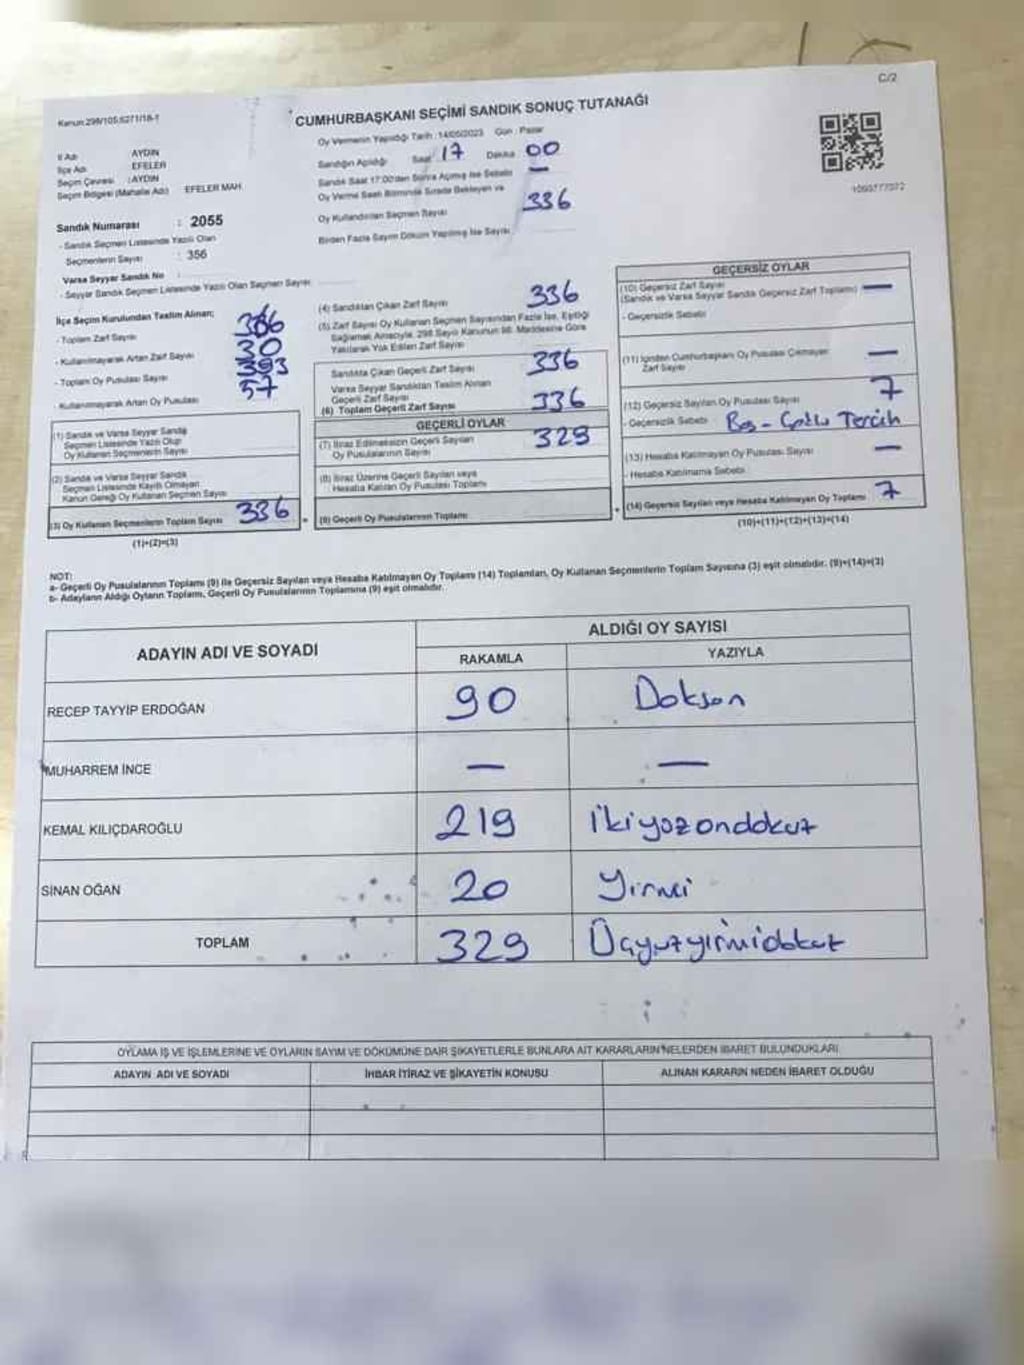 C/2
Kanun:298/105,6271/18-1
CUMHURBAŞKANI SEÇİMİ SANDIK SONUÇ TUTANAĞI
İl Adı AYDIN
İlçe Adı EFELER
Seçim Çevresi :AYDIN
Seçim Bölgesi (Mahalle Adı) EFELER MAH.
Sandık Numarası : 2055
- Sandık Seçmen Listesinde Yazılı Olan
Seçmenlerin Sayısı : 356
Varsa Seyyar Sandık No :
- Seyyar Sandık Seçmen Listesinde Yazılı Olan Seçmen Sayısı
Oy Vermenin Yapıldığı Tarih :14/05/2023 Gün : Pazar
Sandığın Açıldığı Saat 17 Dakika 00
Sandık Saat 17:00'den Sonra Açılmış İse Sebebi —
Oy Verme Saati Bitiminde Sırada Bekleyen ve
Oy Kullandırılan Seçmen Sayısı 336
Birden Fazla Sayım Döküm Yapılmış İse Sayısı
1093777072
İlçe Seçim Kurulundan Teslim Alınan;
- Toplam Zarf Sayısı
- Kullanılmayarak Artan Zarf Sayısı 30
- Toplam Oy Pusulası Sayısı 393
- Kullanılmayarak Artan Oy Pusulası 57
(1) Sandık ve Varsa Seyyar Sandık
Seçmen Listesinde Yazılı Olup
Oy Kullanan Seçmenlerin Sayısı
(2) Sandık ve Varsa Seyyar Sandık
Seçmen Listesinde Kayıtlı Olmayan
Kanun Gereği Oy Kullanan Seçmen Sayısı
(3) Oy Kullanan Seçmenlerin Toplam Sayısı 336
(1)+(2)=(3)
(4) Sandıktan Çıkan Zarf Sayısı 336
(5) Zarf Sayısı Oy Kullanan Seçmen Sayısından Fazla İse, Eşitliği
Sağlamak Amacıyla, 298 Sayılı Kanunun 98. Maddesine Göre
Yakılarak Yok Edilen Zarf Sayısı
Sandıkta Çıkan Geçerli Zarf Sayısı 336
Varsa Seyyar Sandıktan Teslim Alınan
Geçerli Zarf Sayısı
(6) Toplam Geçerli Zarf Sayısı 336
GEÇERLİ OYLAR
(7) İtiraz Edilmeksizin Geçerli Sayılan
Oy Pusulalarının Sayısı 329
(8) İtiraz Üzerine Geçerli Sayılan veya
Hesaba Katılan Oy Pusulası Toplamı
(9) Geçerli Oy Pusulalarının Toplamı
GEÇERSİZ OYLAR
(10) Geçersiz Zarf Sayısı
(Sandık ve Varsa Seyyar Sandık Geçersiz Zarf Toplamı) —
- Geçersizlik Sebebi
(11) İçinden Cumhurbaşkanı Oy Pusulası Çıkmayan
Zarf Sayısı —
(12) Geçersiz Sayılan Oy Pusulası Sayısı 7
- Geçersizlik Sebebi Boş - Çoklu Tercih
(13) Hesaba Katılmayan Oy Pusulası Sayısı —
- Hesaba Katılmama Sebebi
(14) Geçersiz Sayılan veya Hesaba Katılmayan Oy Toplamı 7
(10)+(11)+(12)+(13)=(14)
NOT:
a- Geçerli Oy Pusulalarının Toplamı (9) ile Geçersiz Sayılan veya Hesaba Katılmayan Oy Toplamı (14) Toplamları, Oy Kullanan Seçmenlerin Toplam Sayısına (3) eşit olmalıdır. (9)+(14)=(3)
b- Adayların Aldığı Oyların Toplamı, Geçerli Oy Pusulalarının Toplamına (9) eşit olmalıdır.
ADAYIN ADI VE SOYADI ALDIĞI OY SAYISI
RAKAMLA YAZIYLA
RECEP TAYYİP ERDOĞAN 90 Doksan
MUHARREM İNCE — —
KEMAL KILIÇDAROĞLU 219 İkiyüzondokuz
SİNAN OĞAN 20 Yirmi
TOPLAM 329 Üçyüzyirmidokuz
OYLAMA İŞ VE İŞLEMLERİNE VE OYLARIN SAYIM VE DÖKÜMÜNE DAİR ŞİKAYETLERLE BUNLARA AİT KARARLARIN NELERDEN İBARET BULUNDUKLARI
ADAYIN ADI VE SOYADI İHBAR İTİRAZ VE ŞİKAYETİN KONUSU ALINAN KARARIN NEDEN İBARET OLDUĞU